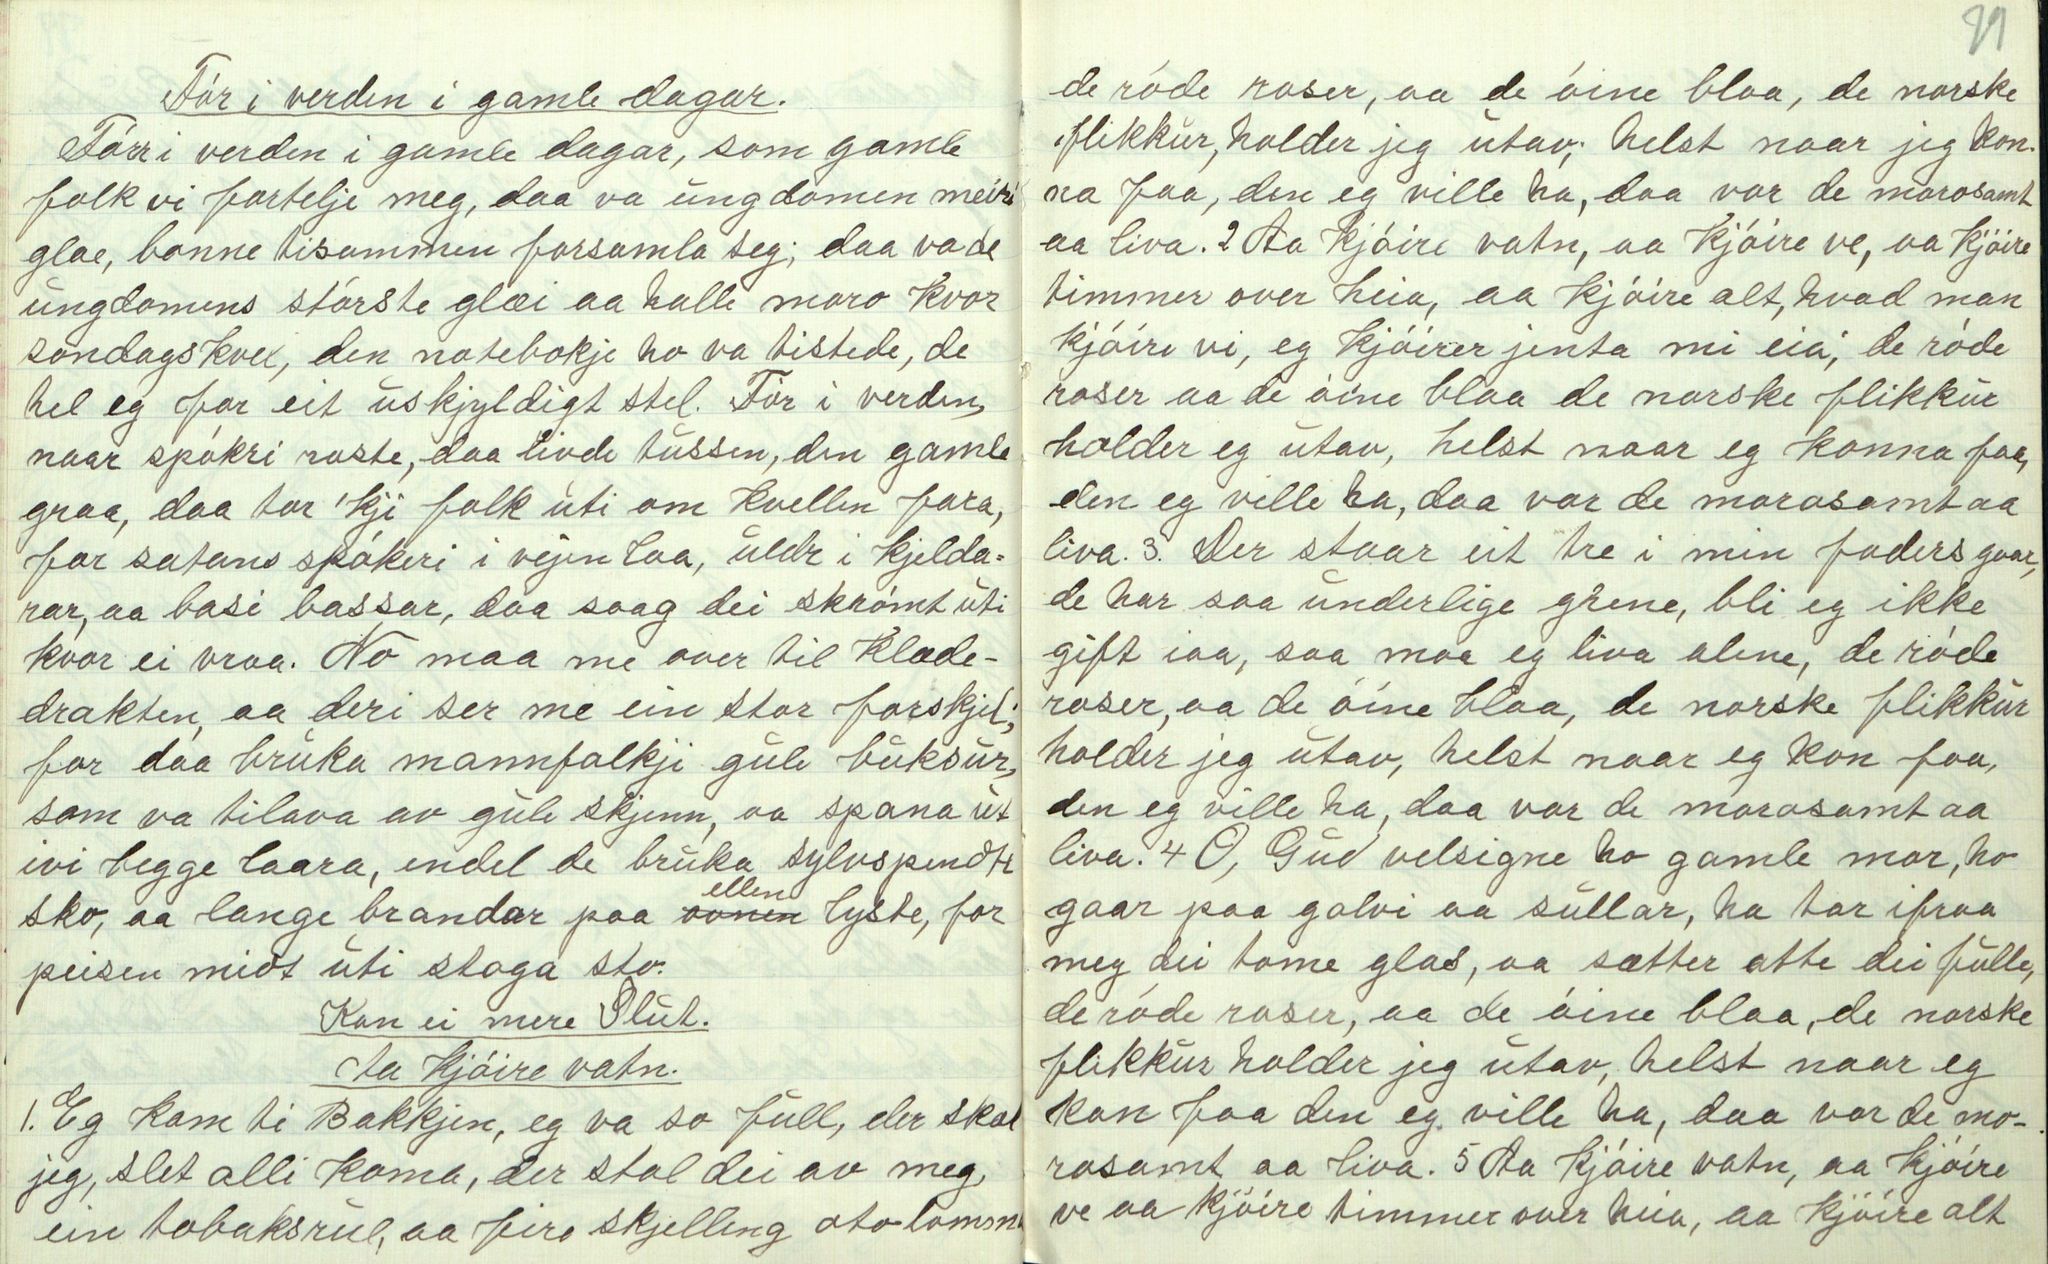 Fór i verden i gamle dagar.
Fórr i verden i gamle dagar, som gamle
folk vi fortelje meg, daa va ungdomen meiri
glae, bonne tisammen forsamla seg; daa va de
ungdomens stórste glæi aa halle moro kvor
sondagskvel, den notebokje ho va tistede, de
hel eg for eit uskjyldigt stel. Fór i verden,
naar spókri roste, daa livde tussen, den gamle
graa, daa tor 'kji folk uti om kvellen fara,
for satans spókeri i vejen laa, uldr i kjelda-
rar, aa basi bassar, daa saag dei skrómt uti
kvor ei vraa. No maa me over til klæde-
drakten, aa deri ser me ein stor forskjel;
for daa bruka mannfolkji gule buksur,
som va tilava av gule skjenn, aa spana ut
ivi begge laara, endel de bruka sylvspendte
sko, aa lange brandar paa ellen lyste, for
peisen midt uti stoga sto.
Kan ei mere Slut.
Aa kjóire vatn.
1. Eg kam ti Bakkjen, eg va so full, der skal
jeg, slet alli koma, der stal dei av meg,
ein tobaksrul, aa fire skjelling oto lomm
91
de róde roser, aa de óine blaa, de norske
flikkur, holder jeg utav; helst naar jeg kon-
na faa, den eg ville ha, daa var de morosamt
aa liva. 2 Aa kjóire vatn, aa kjóire ve, aa kjóire
timmer over heia, aa kjóire alt, hvad man
kjóire vi, eg kjóirer jenta mi eia; de róde
roser aa de óine blaa de norske flikkur
holder eg utav, helst naar eg konna faa,
den eg ville ha, daa var de morosamt aa
liva. 3. Der staar eit tre i min faders gaar,
de har saa underlige grene, bli eg ikke
gift iaa, saa maa eg liva alene, de róde
roser, aa de óine blaa, de norske flikkur
holder jeg utav, helst naar eg kon faa,
den eg ville ha, daa var de morosamt aa
liva. 4 O, Gud velsigne ho gamle mor, ho
gaar paa golvi aa sullar, ho tar ifraa
meg dei tome glas, aa sætter atte dei fulle,
de róde roser, aa de óine blaa, de norske
flikkur holder jeg utav, helst naar eg
kan faa den eg ville ha, daa var de mo-
rosamt aa liva. 5 Aa kjóire vatn, aa kjóire
ve aa kjóire timmer over heia, aa kjóire alt